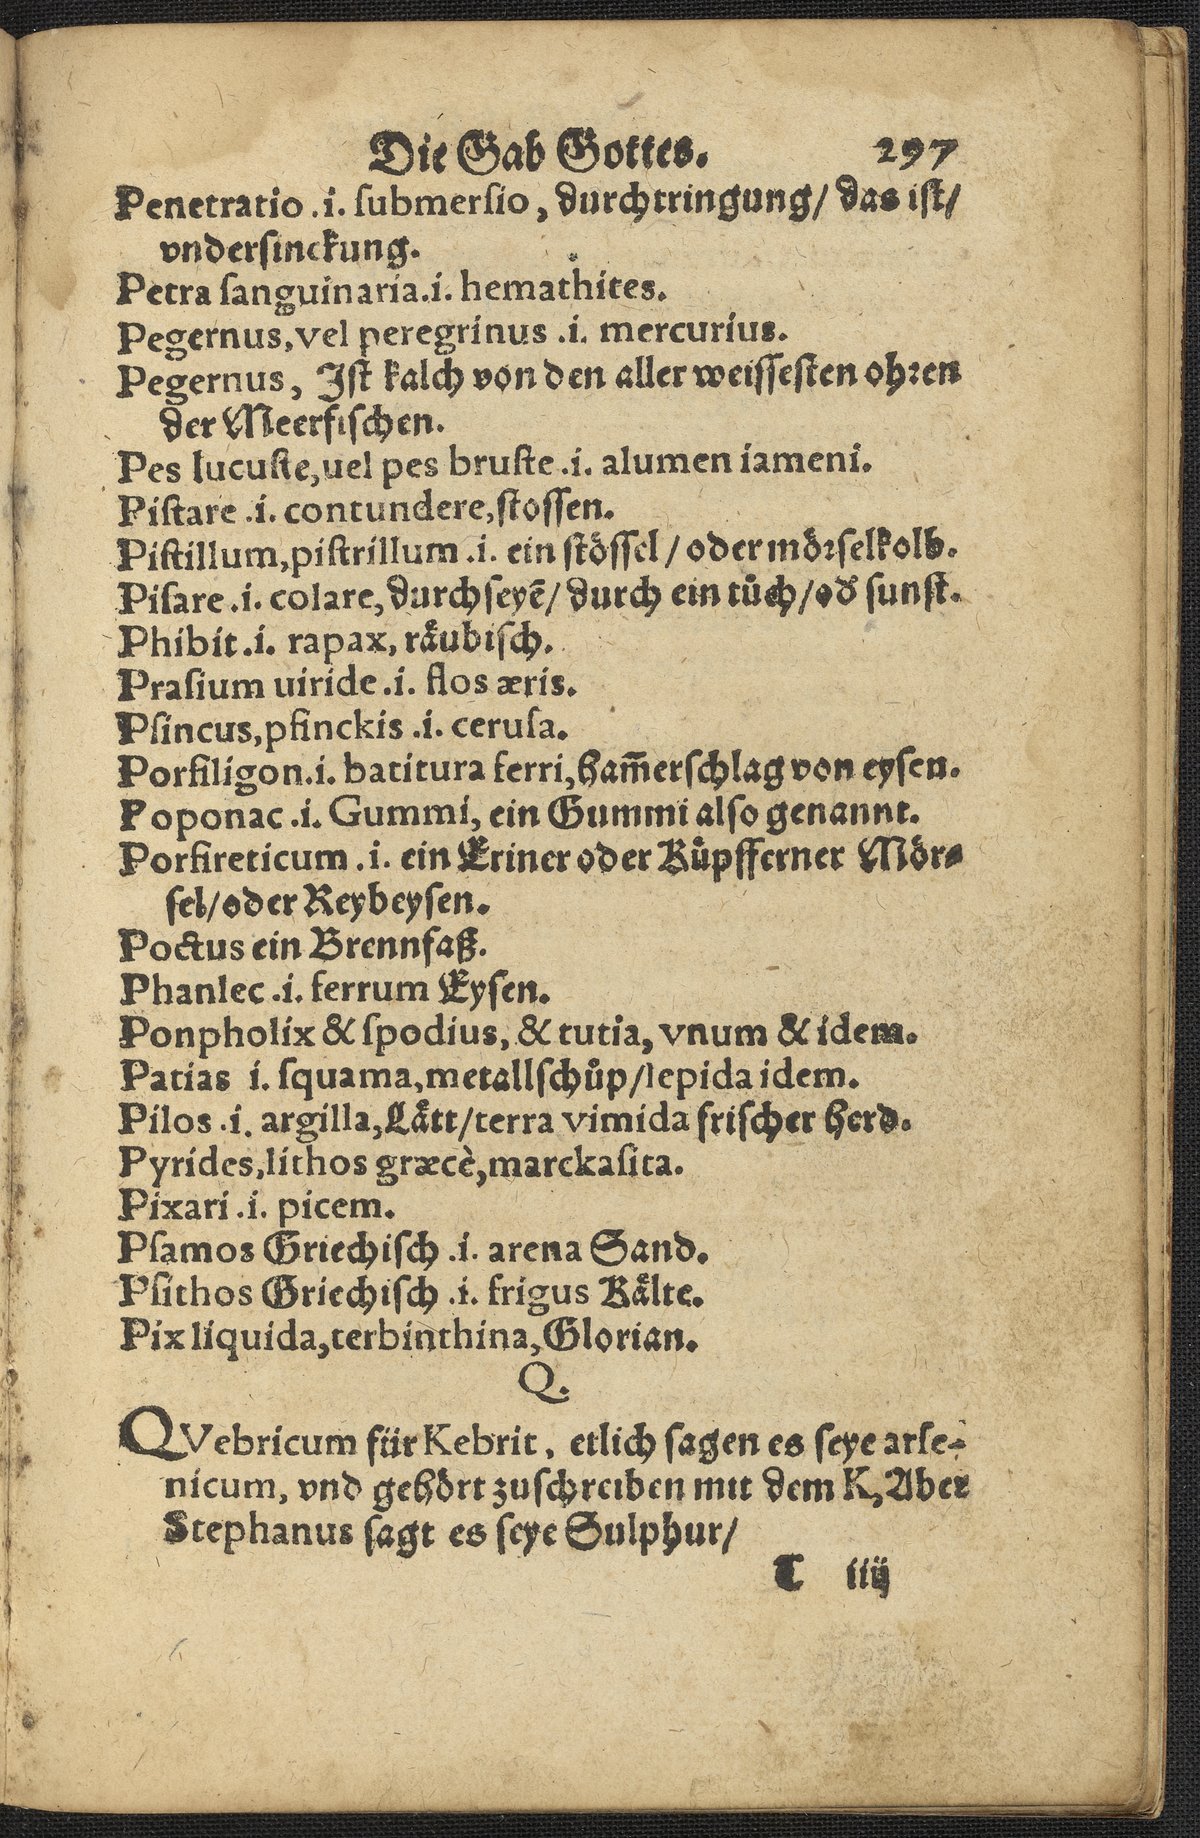 Die Gab Gottes. 297
Penetratio .i. ſubmerſio, durchtringung/ das iſt/
vnderſinckung.
Petra ſanguinaria.i. hemathites.
Pegernus, vel peregrinus .i. mercurius.
Pegernus, Iſt kalch von den aller weiſſeſten ohꝛen
der Meerfiſchen.
Pes lucuſte, uel pes bruſte .i. alumen iameni.
Piſtare .i. contundere, ſtoſſen.
Piſtillum, piſtrillum .i. ein ſtöſſel / oder möꝛſelkolb.
Piſare .i. colare, durchſeyē/ durch ein tůch/od̛ ſunſt.
Phibit .i. rapax, raͤubiſch.
Praſium uiride .i. flos æris.
Pſincus, pſinckis .i. ceruſa.
Porfiligon.i. batitura ferri, ham̄erſchlag von eyſen.
Poponac .i. Gummi, ein Gummi alſo genannt.
Porfireticum .i. ein Eriner oder Kůpfferner Mör⸗
ſel/oder Reybeyſen.
Poctus ein Brennfaß.
Phanlec .i. ferrum Eyſen.
Ponpholix & ſpodius, & tutia, vnum & idem.
Patias i. ſquama, metallſchůp/lepida idem.
Pilos .i. argilla, Laͤtt/terra vimida friſcher herd.
Pyrides, lithos græcè, marckaſita.
Pixari .i. picem.
Pſamos Griechiſch .i. arena Sand.
Pſithos Griechiſch .i. frigus Kaͤlte.
Pix liquida, terbinthina, Glorian.
Q.
QVebricum für Kebrit, etlich ſagen es ſeye arſe-
nicum, vnd gehört zuſchreiben mit dem K, Aber
Stephanus ſagt es ſeye Sulphur/
T iiij